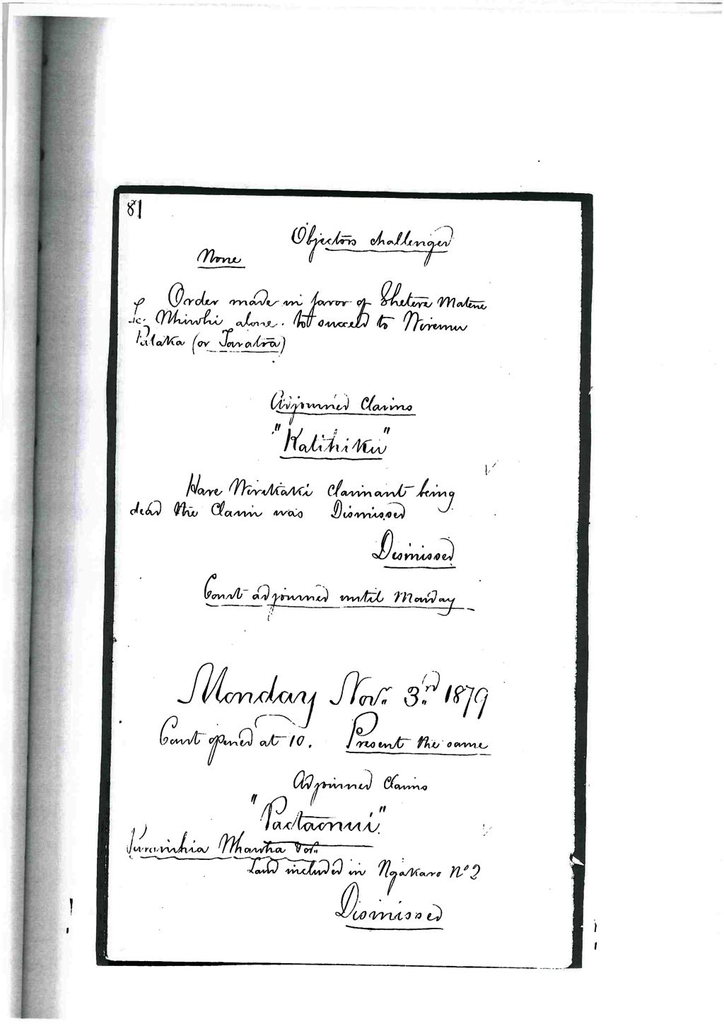 81
Objectors challenged
None
Order made in favor of Matene
alone. to succeed to Wiremu
(or
Adjourned Claims
"Katihiku"
Hare Wirikaki claimant being
dead the Claim was Dismissed
Dismissed
Court adjourned until Monday
Monday Novr. 3rd. 1879
Court opened at 10. Present the same
Adjourned Claims
Land included in Ngakaro No 2
Dismissed